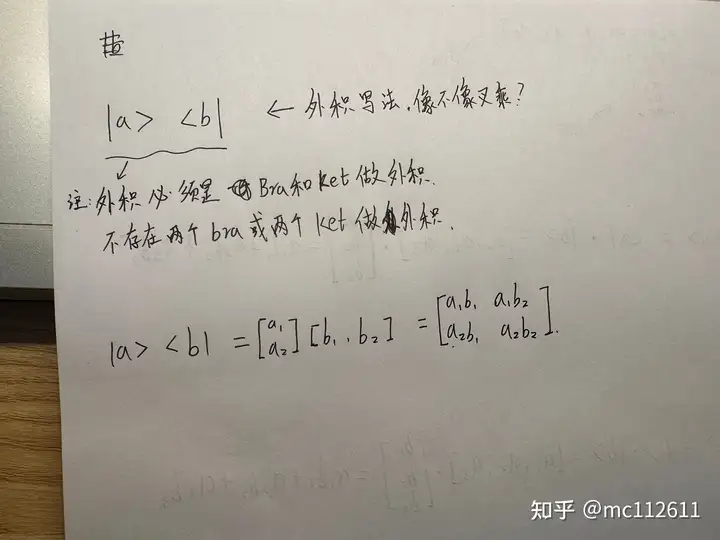 |a> <b| ← 外积写法,像不像叉乘?
注:外积必须是 Bra和ket做外积.
不存在两个 bra 或两个 ket 做外积.
|a> <b| = [a₁ a₂] [b₁, b₂] = [a₁b₁ a₁b₂ a₂b₁ a₂b₂].
知乎 @mc112611